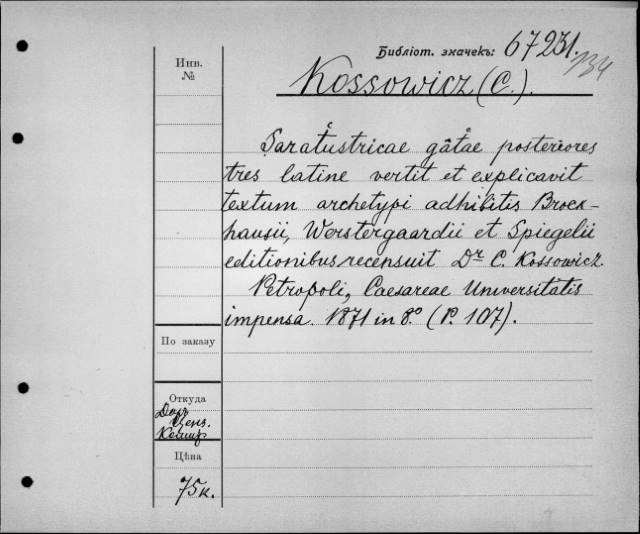 Библіот. значекъ: 67231.
134
Инв.
№
Kossowicz (C.).
Saratustricae gâtae posteriores
tres latine vertit et explicavit
textum archetypi adhibitis Brock-
hausii, Werstergaardii et Spiegelii
editionibus recensuit Dr C. Kossowicz.
Petropoli, Caesareae Universitatis
impensa. 1871 in 8º. (P. 107).
По заказу
Откуда
Даръ
Ценз.
Комит.
Цѣна
75 к.